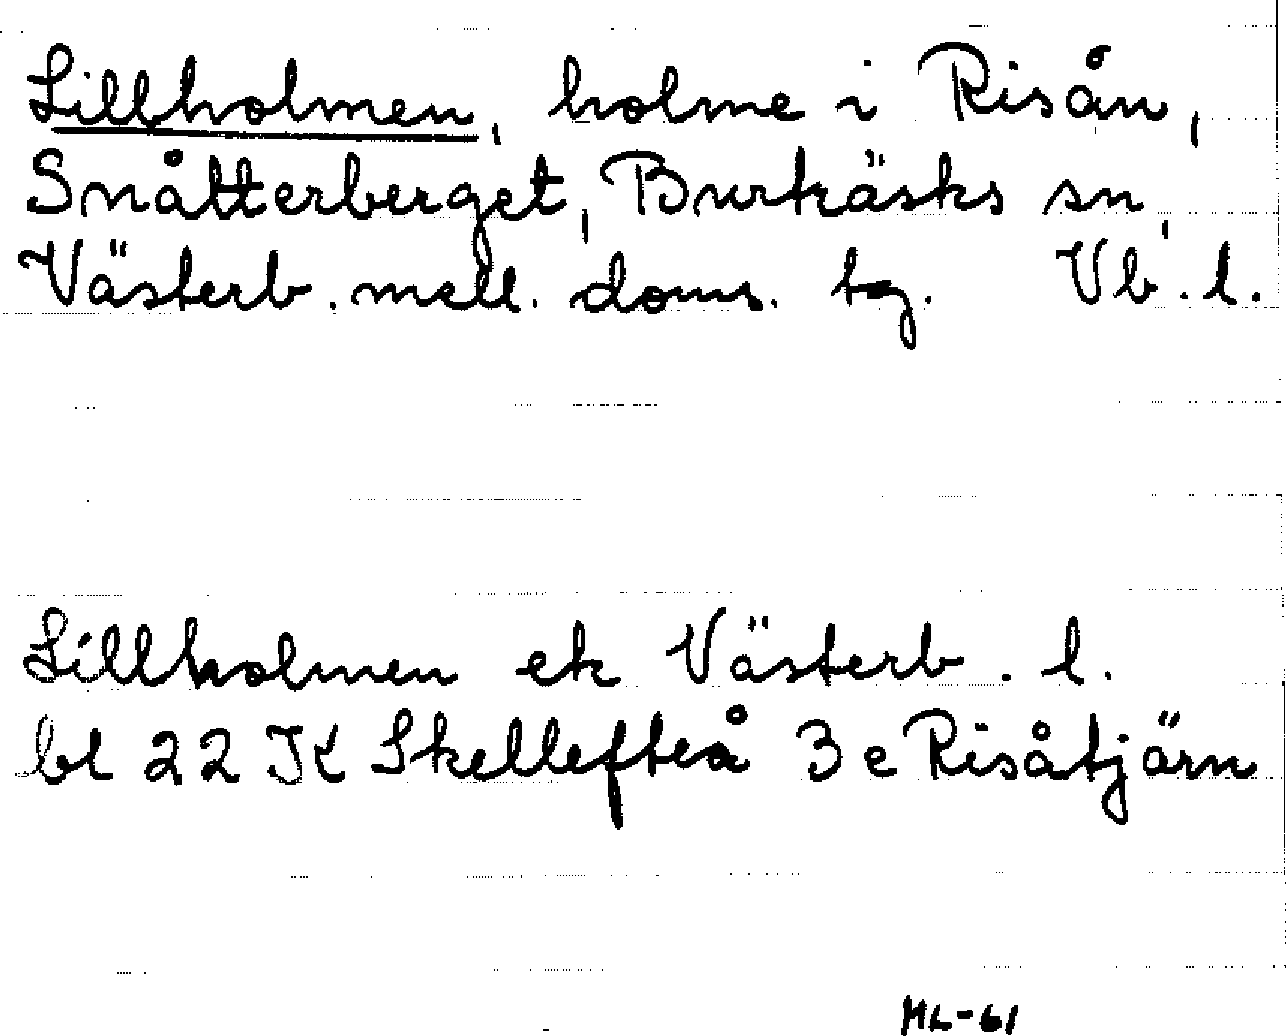 Lillholmen, holme i Risån,
Snåtterberget, Burträsks sn,
Västerb. mell. doms. tg. Vb. l.
Lillholmen ek Västerb. l.
bl 22 K Skellefteå 3 e Risåtjärn
ML-61